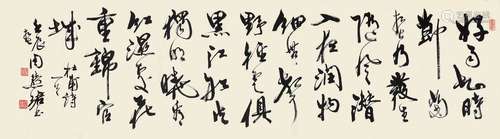 好雨知時
節當
春乃發生
隨風潛
入夜潤物
細無聲
野徑雲俱
黑江船火
獨明曉看
紅濕處花
重錦官
城 杜甫詩
壬辰 周慧珺书